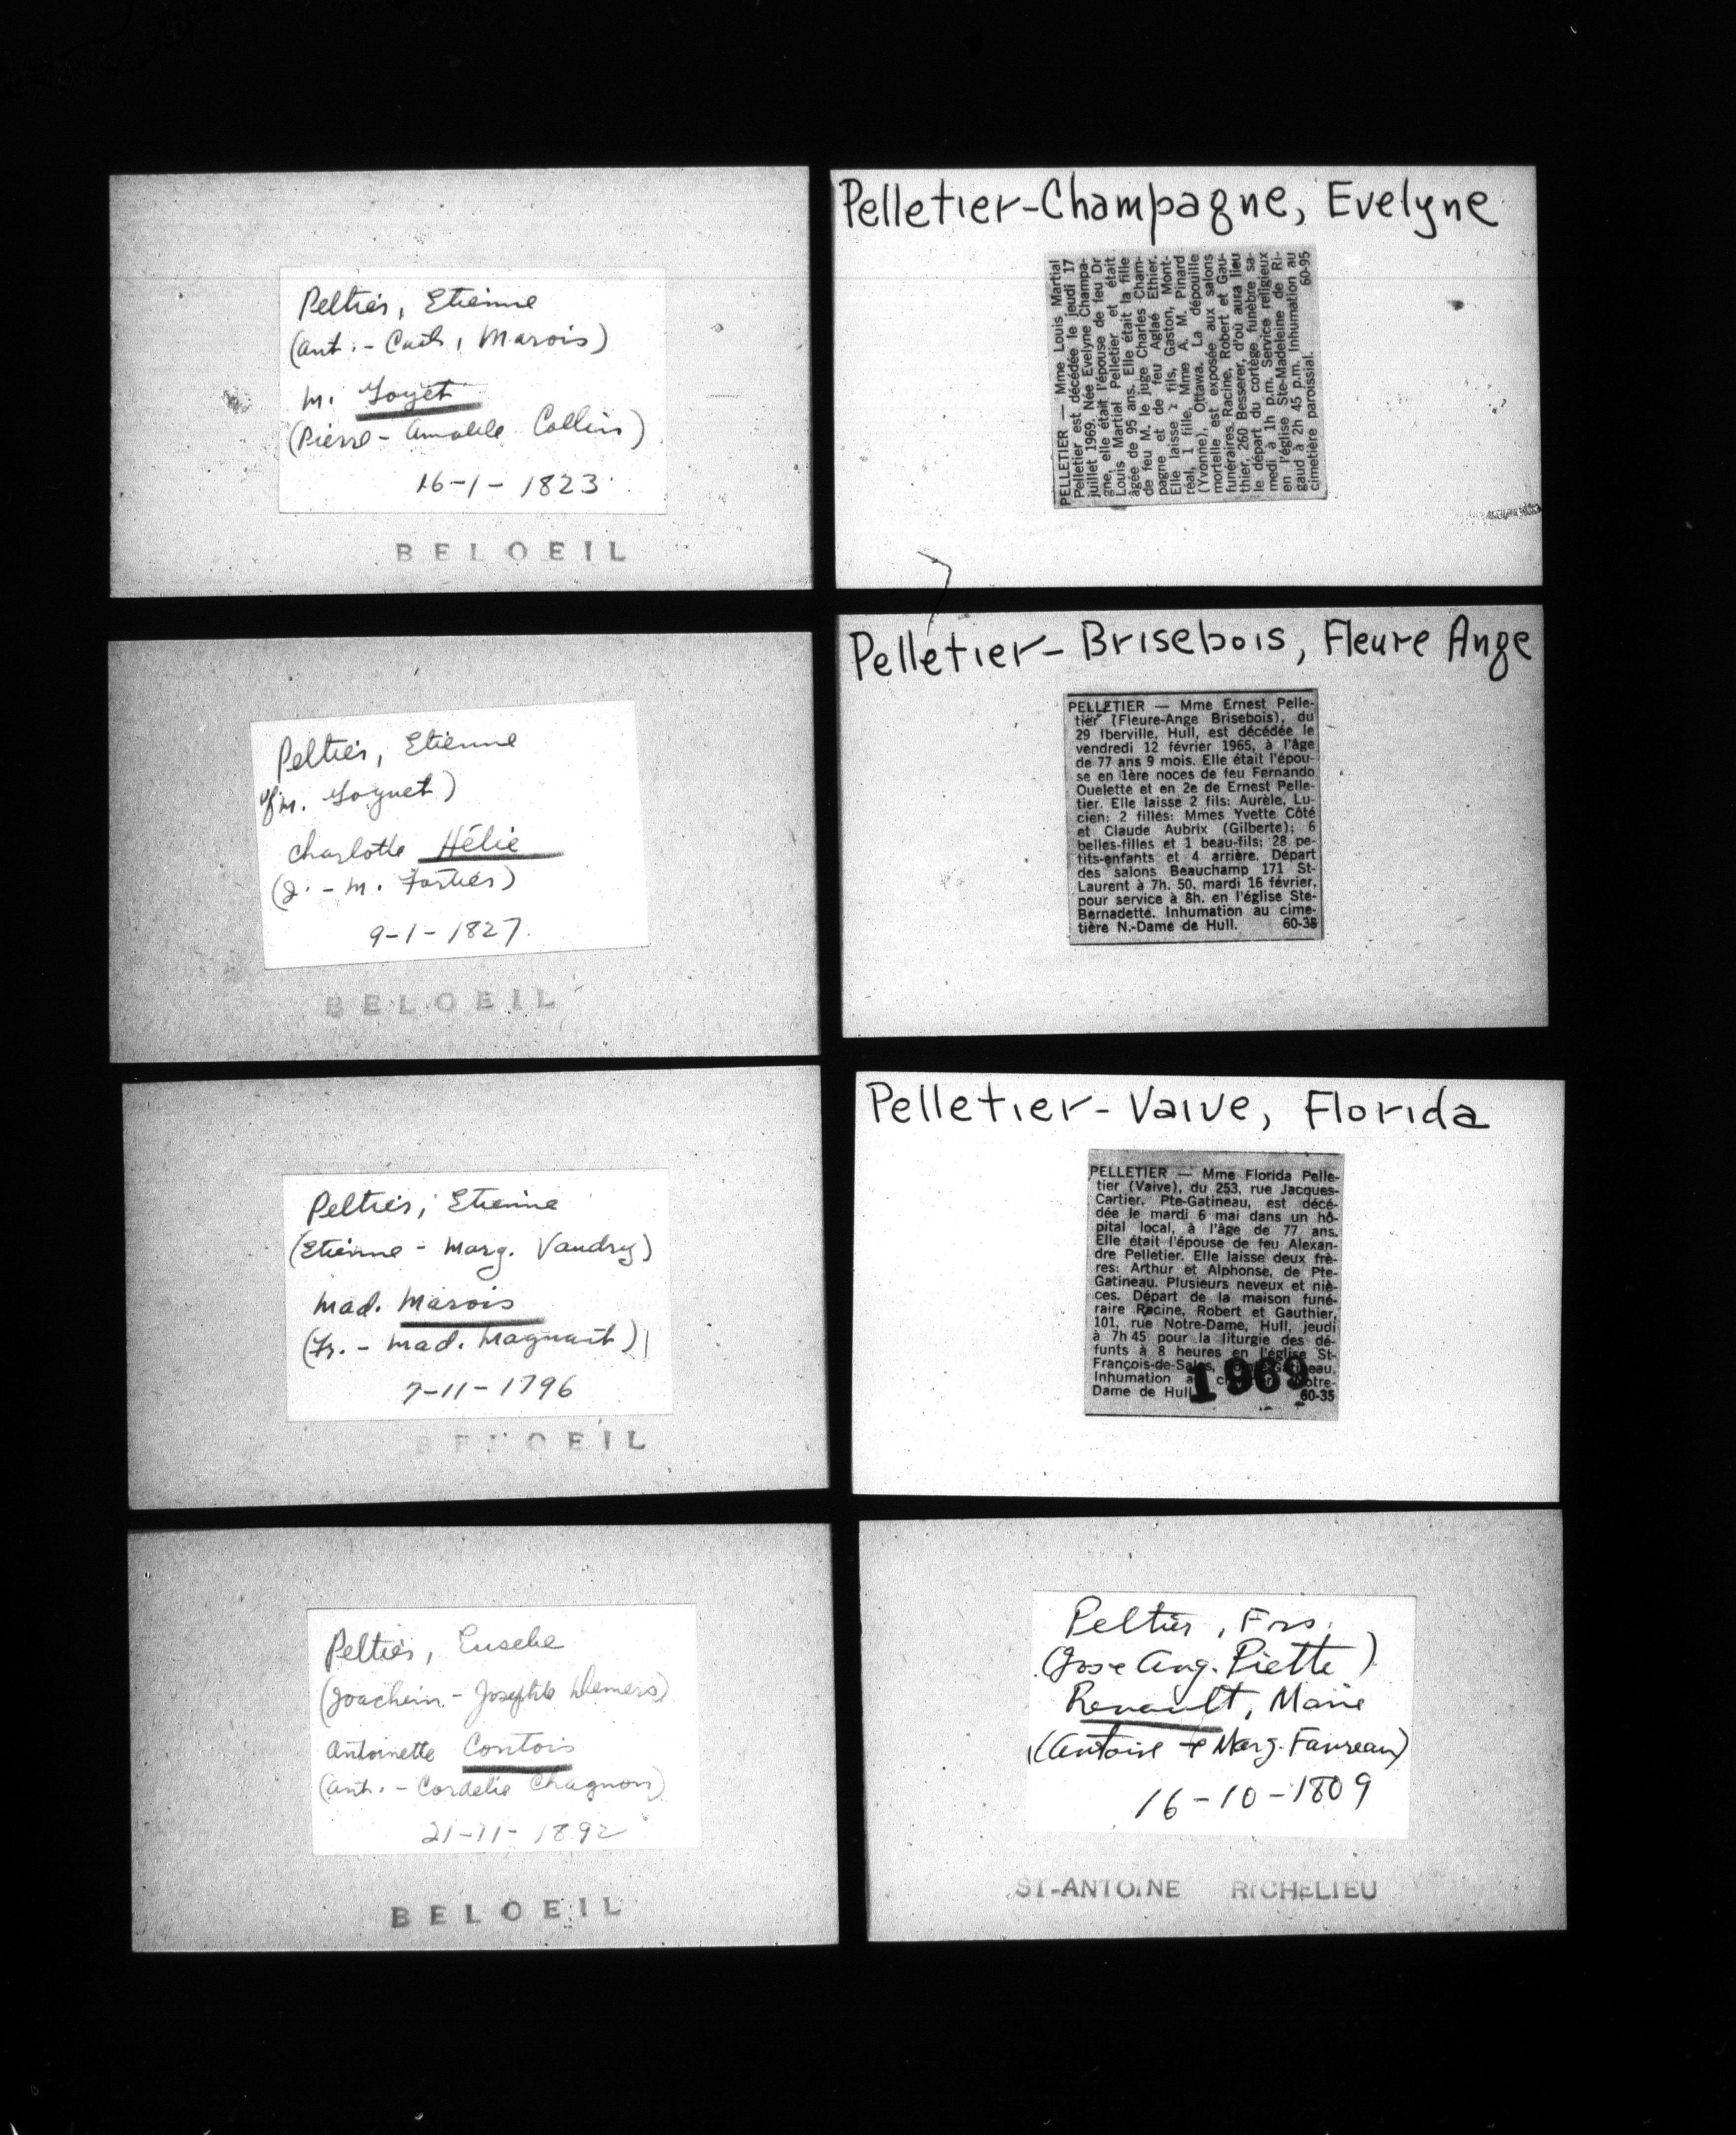 Peltier, Etienne
(Ant. - Cath. Marois)
m. Goyet
(Pierre - Amable Collin)
16-1-1823
BELOEIL
Peltier, Etienne
vf m. Goguet)
Charlotte Hélie
(J. - M. Fortier)
9-1-1827.
BELOEIL
Peltier, Etienne
(Etienne - Marg. Vaudry)
Mad. Marois
(Fr. - Mad. Magnant)
7-11-1796
BELOEIL
Peltier, Eusebe
(Joachim - Josephte Demers)
Antoinette Contois
(Ant. - Cordelie Chagnon)
21-11-1892
BELOEIL
Pelletier-Champagne, Evelyne
PELLETIER — Mme Louis Martial
Pelletier est décédée le jeudi 17
juillet 1969. Née Evelyne Champa-
gne, elle était l'épouse de feu Dr
Louis Martial Pelletier et était
âgée de 95 ans. Elle était la fille
de feu M. le juge Charles Cham-
pagne et de feu Aglaé Ethier.
Elle laisse 1 fils, Gaston, Mont-
réal, 1 fille, Mme A. M. Pinard
(Yvonne), Ottawa. La dépouille
mortelle est exposée aux salons
funéraires Racine, Robert et Gau-
thier, 260 Besserer, d'où aura lieu
le départ du cortège funèbre sa-
medi à 1h p.m. Service religieux
en l'église Ste-Madeleine de Ri-
gaud à 2h 45 p.m. Inhumation au
cimetière paroissial. 60-95
Pelletier-Brisebois, Fleure Ange
PELLETIER — Mme Ernest Pelle-
tier (Fleure-Ange Brisebois), du
29 Iberville, Hull, est décédée le
vendredi 12 février 1965, à l'âge
de 77 ans 9 mois. Elle était l'épou-
se en 1ère noces de feu Fernando
Ouelette et en 2e de Ernest Pelle-
tier. Elle laisse 2 fils: Aurèle, Lu-
cien; 2 filles: Mmes Yvette Côté
et Claude Aubrix (Gilberte); 6
belles-filles et 1 beau-fils; 28 pe-
tits-enfants et 4 arrière. Départ
des salons Beauchamp 171 St-
Laurent à 7h. 50. mardi 16 février,
pour service à 8h. en l'église Ste-
Bernadette. Inhumation au cime-
tière N.-Dame de Hull. 60-38
Pelletier-Vaive, Florida
PELLETIER — Mme Florida Pelle-
tier (Vaive), du 253, rue Jacques-
Cartier, Pte-Gatineau, est décé-
dée le mardi 6 mai dans un hô-
pital local, à l'âge de 77 ans.
Elle était l'épouse de feu Alexan-
dre Pelletier. Elle laisse deux frè-
res: Arthur et Alphonse, de Pte-
Gatineau. Plusieurs neveux et niè-
ces. Départ de la maison funé-
raire Racine, Robert et Gauthier,
101, rue Notre-Dame, Hull, jeudi
à 7h 45 pour la liturgie des dé-
funts à 8 heures en l'église St-
François-de-Sales,
Inhumation
Dame de Hull 60-35
1969
Peltier, Frs.
(Jos e Ang. Piette)
Renault, Marie
(Antoine e Marg. Favreau)
16-10-1809
ST-ANTOINE RICHELIEU